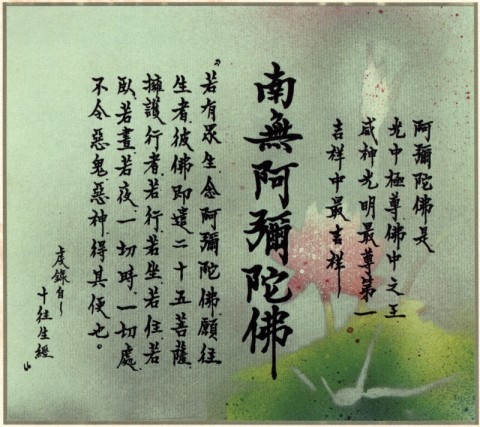 阿彌陀佛是
光中極尊佛中之王
威神光明最尊第一
吉祥中最吉祥
南無阿彌陀佛
〝若有眾生念阿彌陀佛願往
生者彼佛即遣二十五菩薩
擁護行者若行若坐若住若
臥若晝若夜一切時一切處
不令惡鬼惡神得其便也。
虔錄自~
十往生經〞